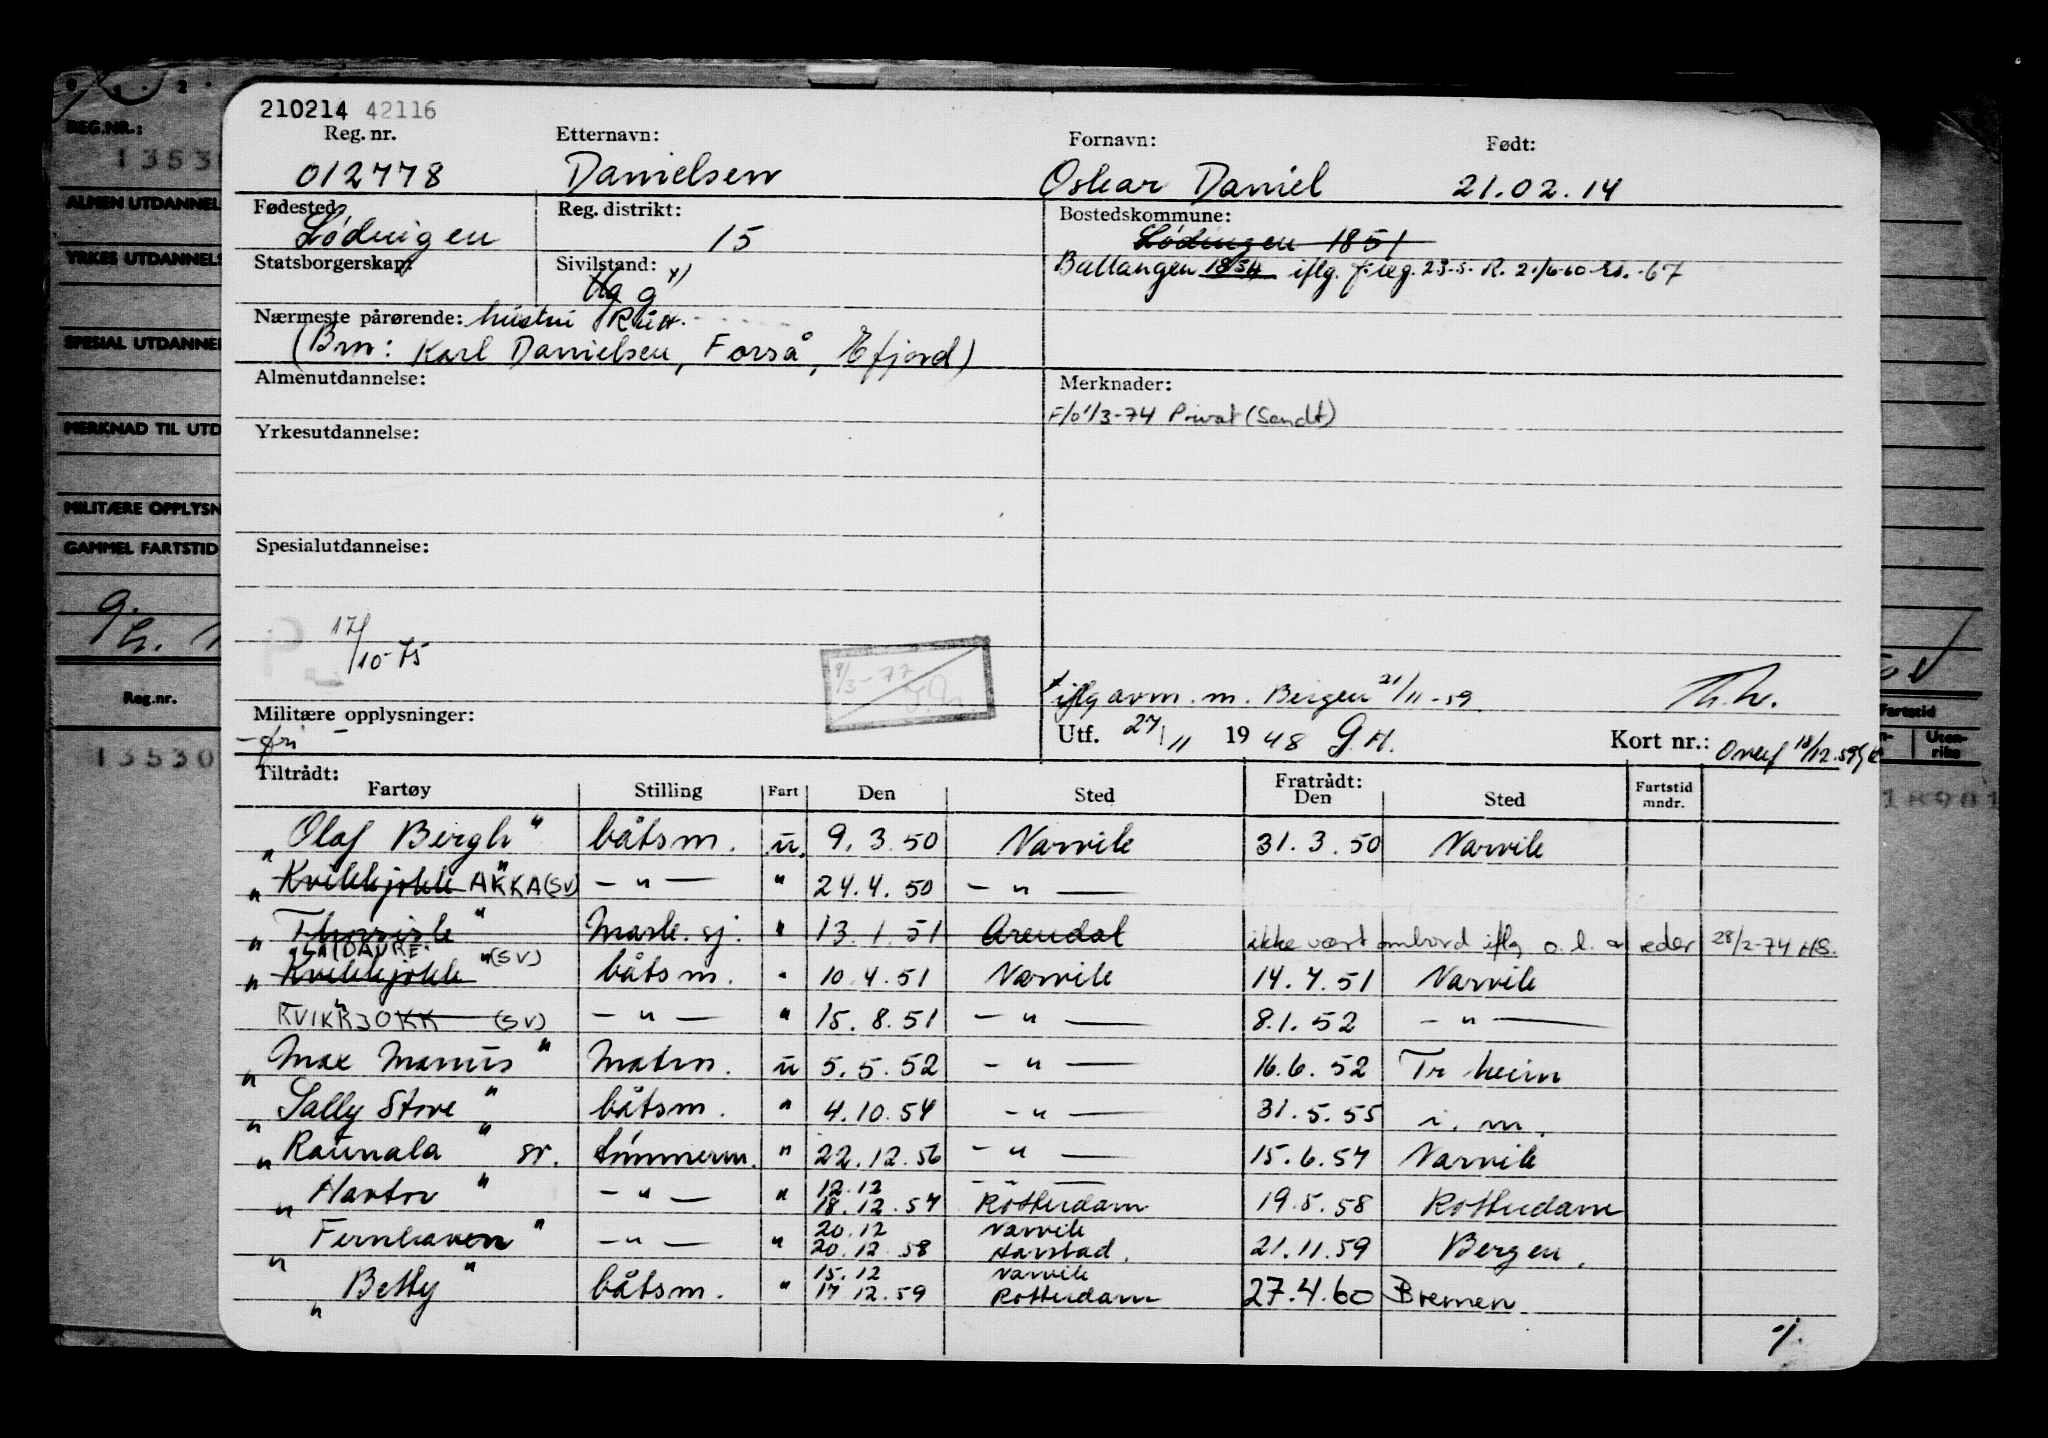 210214 42116
Reg. nr. Etternavn: Fornavn: Født:
012778 Danielsen Oskar Daniel 21.02.14
Fødested Reg. distrikt: Bostedskommune:
Lødingen 15 Lødingen 1851
Statsborgerskap: Sivilstand: Ballangen 1854 iflg.
Ug g x)
Nærmeste pårørende: hustru Ruth.
(Bror: Karl Danielsen, Forså, Efjord)
Almenutdannelse: Merknader:
F/o 1/3-74 Privat (Sendt)
Yrkesutdannelse:
Spesialutdannelse:
17/10-75
9/3-77
x iflg avm. m. Bergen 21/11-59
Militære opplysninger: Utf. 27/11 1948 G.H. Kort nr.: Overf 18/12.59
- fri -
Tiltrådt: Fratrådt:
Fartøy Stilling Fart Den Sted Den Sted Fartstid mndr.
"Olaf Bergh" båtsm. u. 9.3.50 Narvik 31.3.50 Narvik
"Kvikkjokk AKKA" (SV) - " - " 24.4.50 - " -
"Thorisle" Mask. sj. " 13.1.51 Arendal ikke vært ombord iflg o.l. a reder 28/2-74 HS.
LAIDAURE
"Kvikkjokk" (SV) båtsm. " 10.4.51 Narvik 14.7.51 Narvik
KVIKKJOKK (SV) - " - " 15.8.51 - " - 8.1.52 - " -
"Max Manus" Matros. u 5.5.52 - " - 16.6.52 Tr heim
"Sally Stove" båtsm. " 4.10.54 - " - 31.5.55 i. m.
"Raunala" sv. tømmerm. " 22.12.56 - " - 15.6.57 Narvik
"Havtor" - " - " 12.12 - " -
18.12.57 Rotterdam 19.5.58 Rotterdam
"Fernhaven" - " - " 20.12 Narvik
20.12.58 Harstad. 21.11.59 Bergen.
"Betty" båtsm. " 15.12 Narvik
17.12.59 Rotterdam 27.4.60 Bremen
REG.NR.:
1353
ALMEN UTDANNEL
YRKES UTDANNELS
SPESIAL UTDANNE
MERKNAD TIL UTD
MILITÆRE OPPLYSN
GAMMEL FARTSTID
Reg.nr.
13530
Fartstid
Uten-
riks
18901